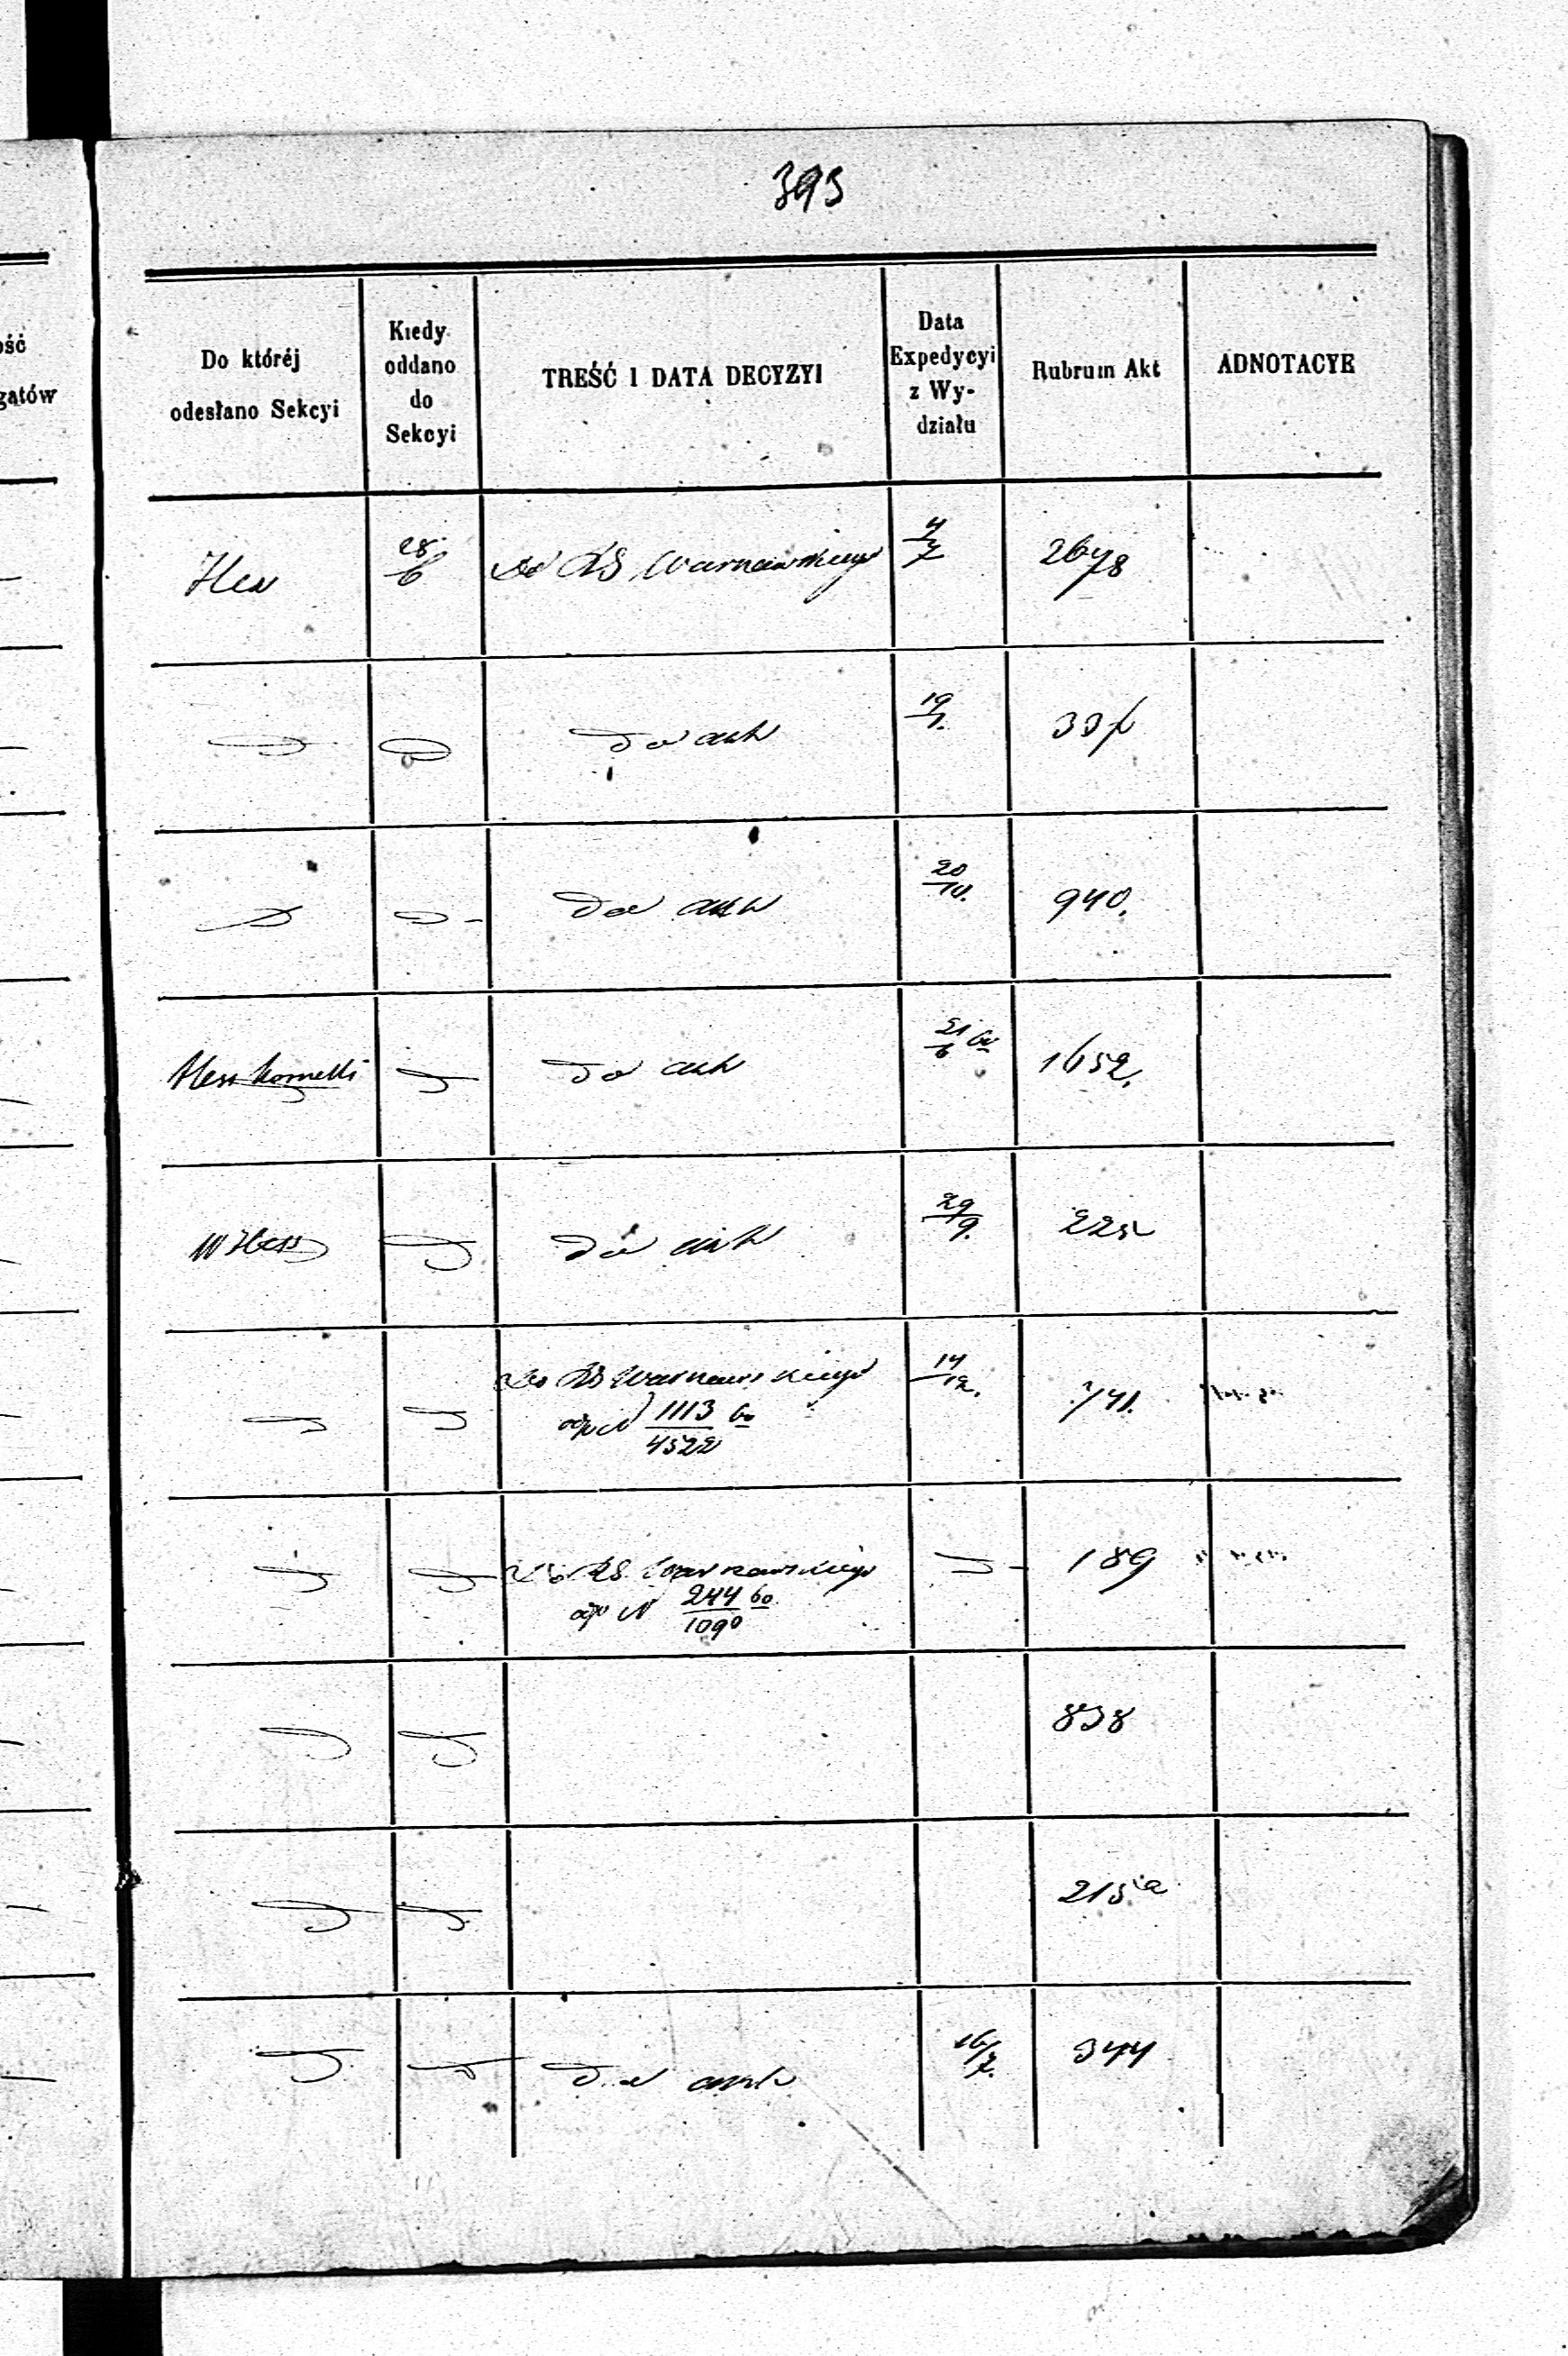 393
ość
gatów
Do któréj
odesłano Sekcyi
Kiedy
oddano
do
Sekcyi
TREŚĆ I DATA DECYZYI
Data
Expedycyi
z Wy-
działu
Rubrum Akt
ADNOTACYE
28/6 Do RS Warszawskiego 4/7
do akt 19/7.
do akt 20/10. 940.
Hess do akt 21/6 60 1652.
W Hess do akt 29/9.
Do RS Warszawskiego 14/12. 741.
N 1113/4522 60
Do RS. Warszawskiego 189
N 244/1090 60
838
215a
do akt 16/7. 344